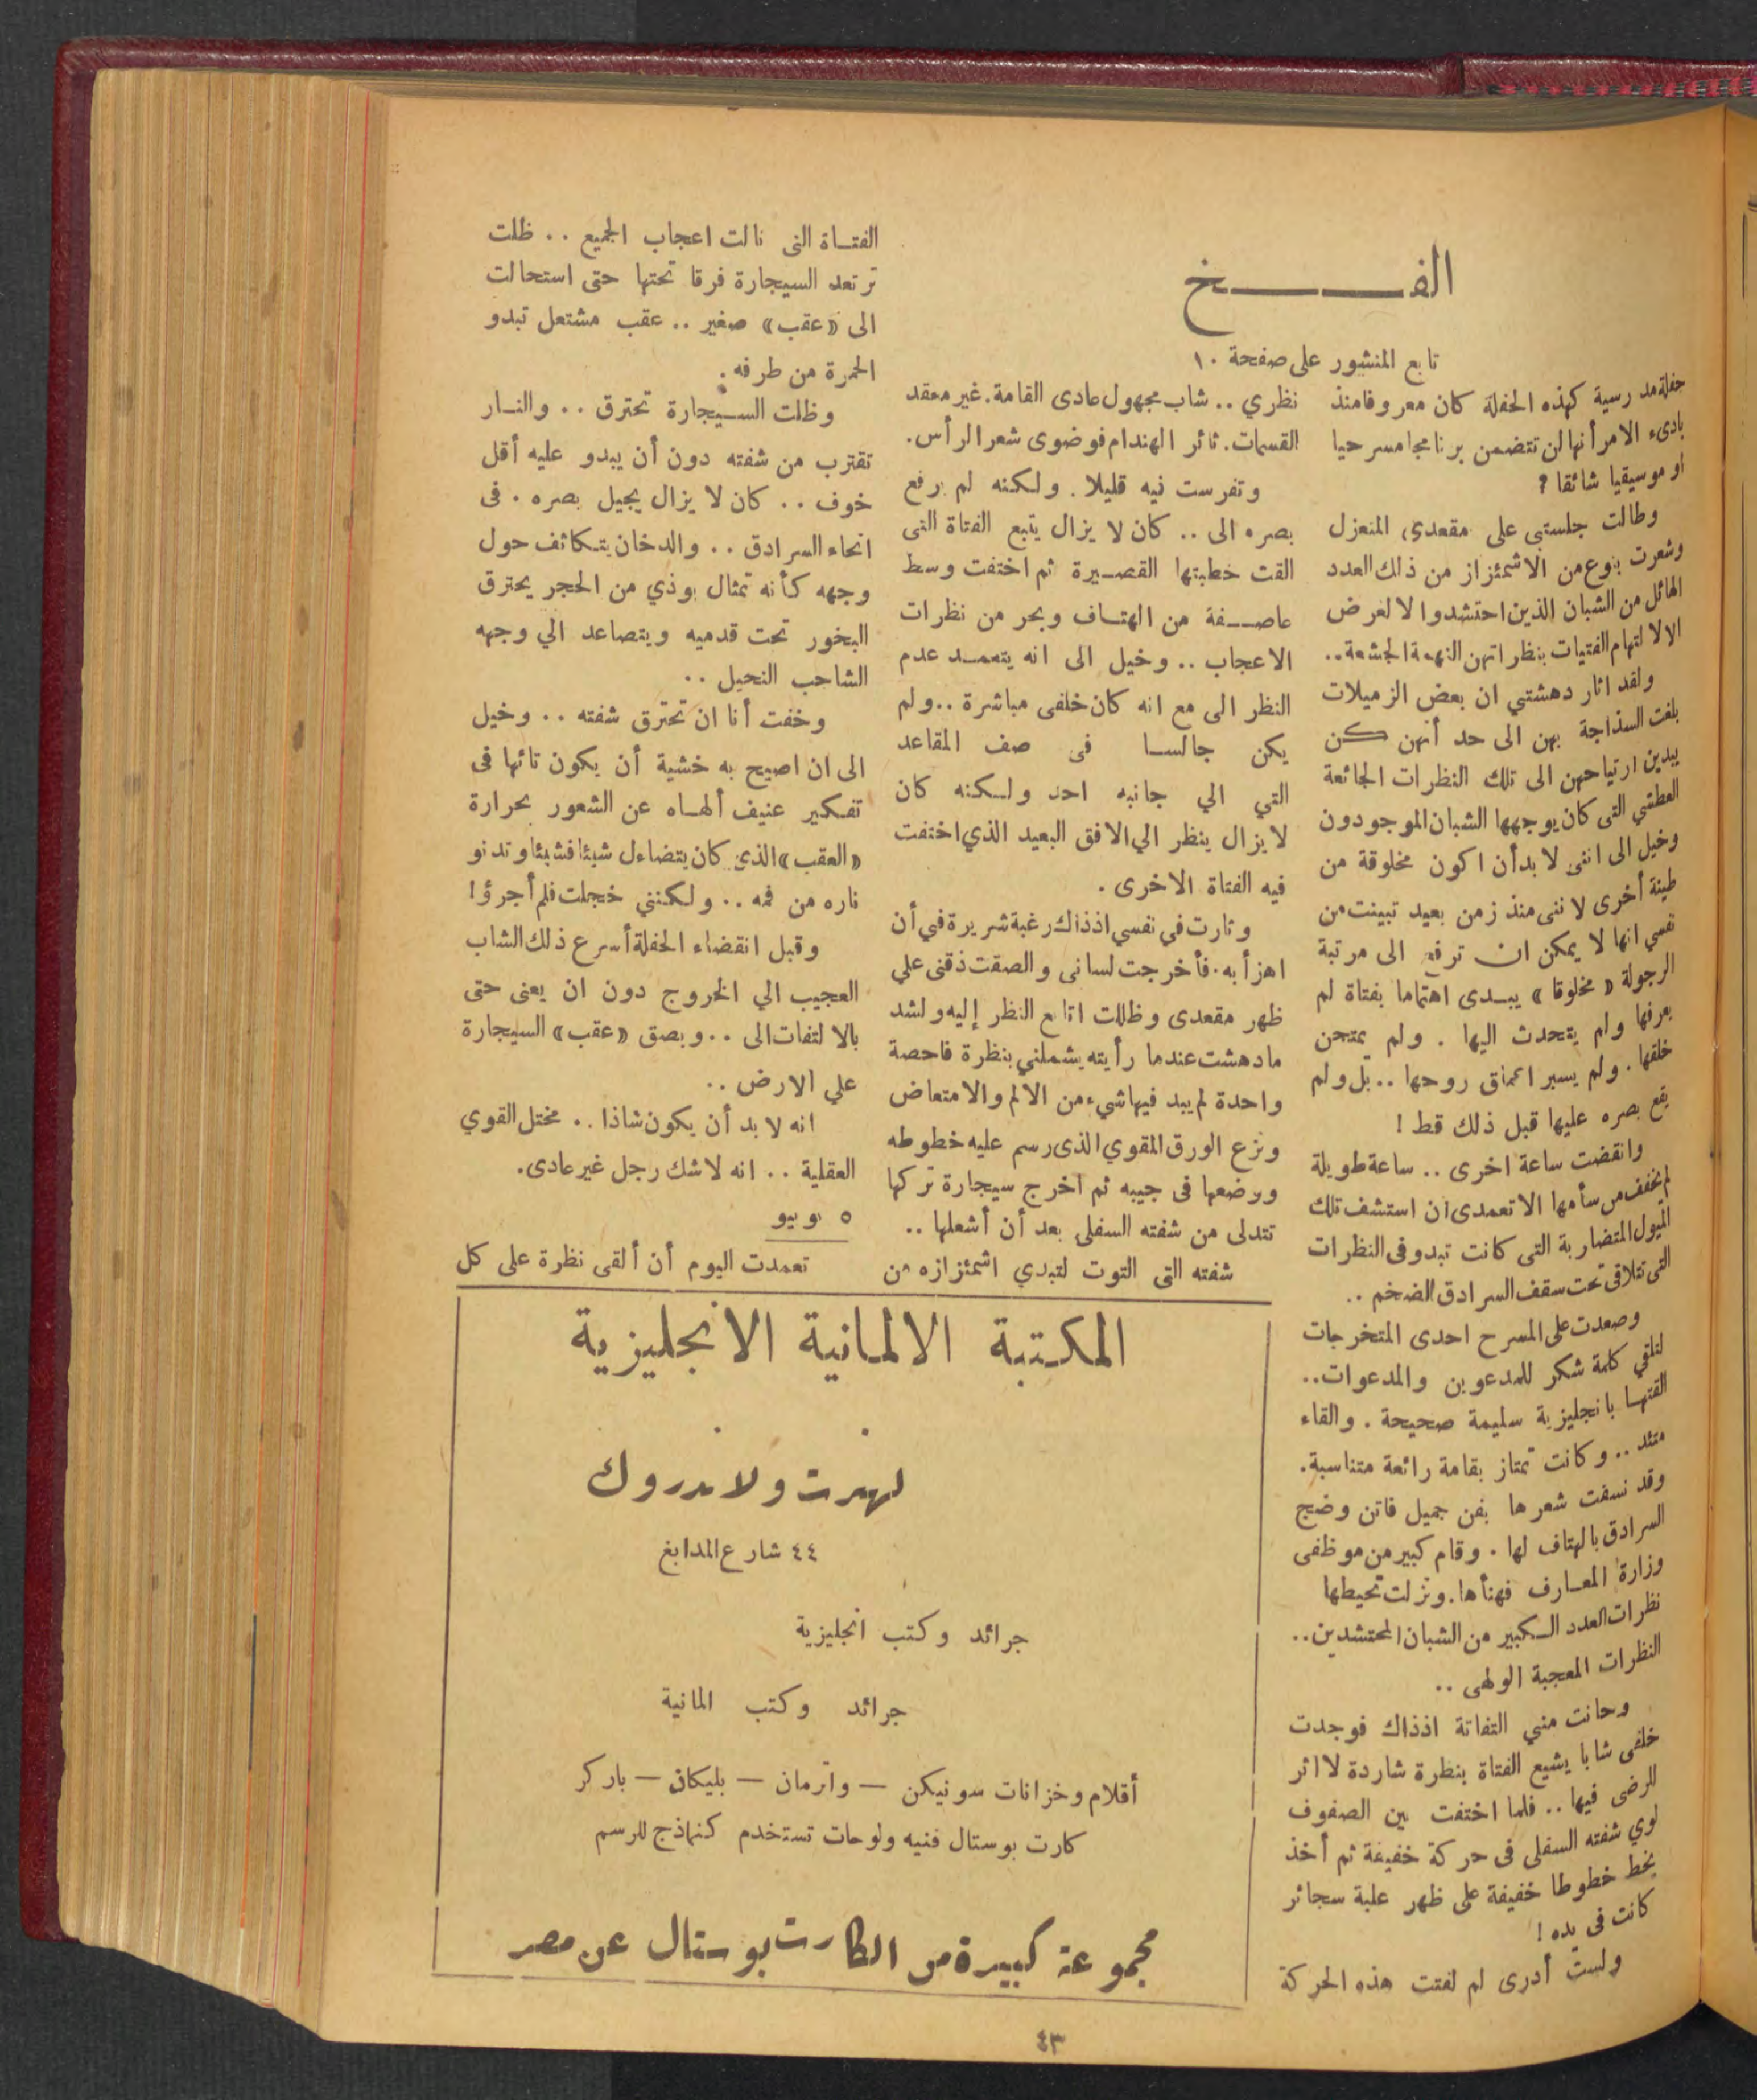 الفـــــــخ
تابع المنشور على صفحة ١٠
حفلة مدرسية كهذه الحفلة كان معروفا منذ
بادىء الامر أنها لن تتضمن برنامجا مسرحيا
او موسيقيا شائقا ?
وطالت جلستى على مقعدى المنعزل
وشعرت بنوع من الاشمئزاز من ذلك العدد
الهائل من الشبان الذين احتشدوا لا لغرض
الا لالتهام الفتيات بنظراتهن النهمة الجشعة..
ولقد اثار دهشتي ان بعض الزميلات
بلغت السذاجة بهن الى حد أنهن كن
يبدين ارتياحهن الى تلك النظرات الجائعة
العطشي التى كان يوجهها الشبان الموجودون
وخيل الى اننى لا بد أن اكون مخلوقة من
طينة أخرى لاننى منذ زمن بعيد تبينت من
نفسي انها لا يمكن ان ترفع الى مرتبة
الرجولة « مخلوقا » يبدى اهتماما بفتاة لم
يعرفها ولم يتحدث اليها . ولم يمتحن
خلقها . ولم يسبر اعماق روحها .. بل ولم
يقع بصره عليها قبل ذلك قط !
وانقضت ساعة اخرى .. ساعة طويلة
لم يخفف من سأمها الا تعمدى ان استشف تلك
الميول المتضاربة التى كانت تبدو فى النظرات
التى تتلاقى تحت سقف السرادق الضخم ..
وصعدت على المسرح احدى المتخرجات
لتلقي كلمة شكر للمدعوين والمدعوات..
القتها بانجليزية سليمة صحيحة . والقاء
متئد .. وكانت تمتاز بقامة رائعة متناسبة.
وقد نسقت شعرها بفن جميل فاتن وضج
السرادق بالهتاف لها . وقام كبير من موظفى
وزارة المعارف فهنأها. ونزلت تحيطها
نظرات العدد الكبير من الشبان المحتشدين..
النظرات المعجبة الولهى ..
وحانت مني التفاتة اذذاك فوجدت
خلفى شابا يشيع الفتاة بنظرة شاردة لا اثر
للرضى فيها .. فلما اختفت بين الصفوف
لوي شفته السفلى فى حركة خفيفة ثم أخذ
يخط خطوطا خفيفة على ظهر علبة سجائر
كانت فى يده !
ولست أدرى لم لفتت هذه الحركة
نظري .. شاب مجهول عادى القامة. غير معقد
القسمات. ثائر الهندام فوضوى شعر الرأس.
وتفرست فيه قليلا . ولكنه لم يرفع
بصره الى .. كان لا يزال يتبع الفتاة التى
القت خطبتها القصيرة ثم اختفت وسط
عاصفة من الهتاف وبحر من نظرات
الاعجاب .. وخيل الى انه يتعمد عدم
النظر الى مع انه كان خلفى مباشرة .. ولم
يكن جالسا فى صف المقاعد
التي الي جانبه احد ولكنه كان
لا يزال ينظر الي الافق البعيد الذي اختفت
فيه الفتاة الاخرى .
وثارت في نفسي اذذاك رغبة شريرة في أن
اهزأ به. فأخرجت لسانى والصقت ذقنى علي
ظهر مقعدى وظللت اتابع النظر إليه ولشد
ما دهشت عندما رأيته يشملني بنظرة فاحصة
واحدة لم يبد فيها شيء من الالم والامتعاض
ونزع الورق المقوي الذى رسم عليه خطوطه
ووضعها فى جيبه ثم اخرج سيجارة تركها
تتدلى من شفته السفلى بعد أن أشعلها ..
شفته التى التوت لتبدي اشمئزازه من
الفتاة التى نالت اعجاب الجميع .. ظلت
ترتعد السيجارة فرقا تحتها حتى استحالت
الى «عقب» صغير .. عقب مشتعل تبدو
الحمرة من طرفه .
وظلت السيجارة تحترق .. والنار
تقترب من شفته دون أن يبدو عليه أقل
خوف .. كان لا يزال يجيل بصره . فى
انحاء السرادق .. والدخان يتكاثف حول
وجهه كأنه تمثال بوذي من الحجر يحترق
البخور تحت قدميه ويتصاعد الي وجهه
الشاحب النحيل ..
وخفت أنا ان تحترق شفته .. وخيل
الى ان اصيح به خشية أن يكون تائها فى
تفكير عنيف ألهاه عن الشعور بحرارة
«العقب» الذى كان يتضاءل شيئا فشيئا وتدنو
ناره من فمه .. ولكنني خجلت فلم أجرؤ!
وقبل انقضاء الحفلة أسرع ذلك الشاب
العجيب الي الخروج دون ان يعنى حتى
بالالتفات الى .. وبصق «عقب» السيجارة
علي الارض ..
انه لا بد أن يكون شاذا .. مختل القوي
العقلية .. انه لاشك رجل غير عادى.
٥ يونيو
تعمدت اليوم أن ألقى نظرة على كل
المكتبة الالمانية الانجليزية
لهنرت ولاندروك
٤٤ شارع المدابغ
جرائد وكتب انجليزية
جرائد وكتب المانية
أقلام وخزانات سونيكن — واترمان — بليكان — باركر
كارت بوستال فنيه ولوحات تستخدم كنماذج للرسم
مجموعة كبيرة من الكارت بوستال عن مصر
٤٣